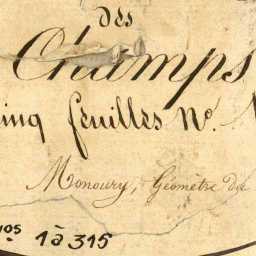 des
Champs
inq feuilles Nº.
Monoury, Géomètre du
nos 1 à 315